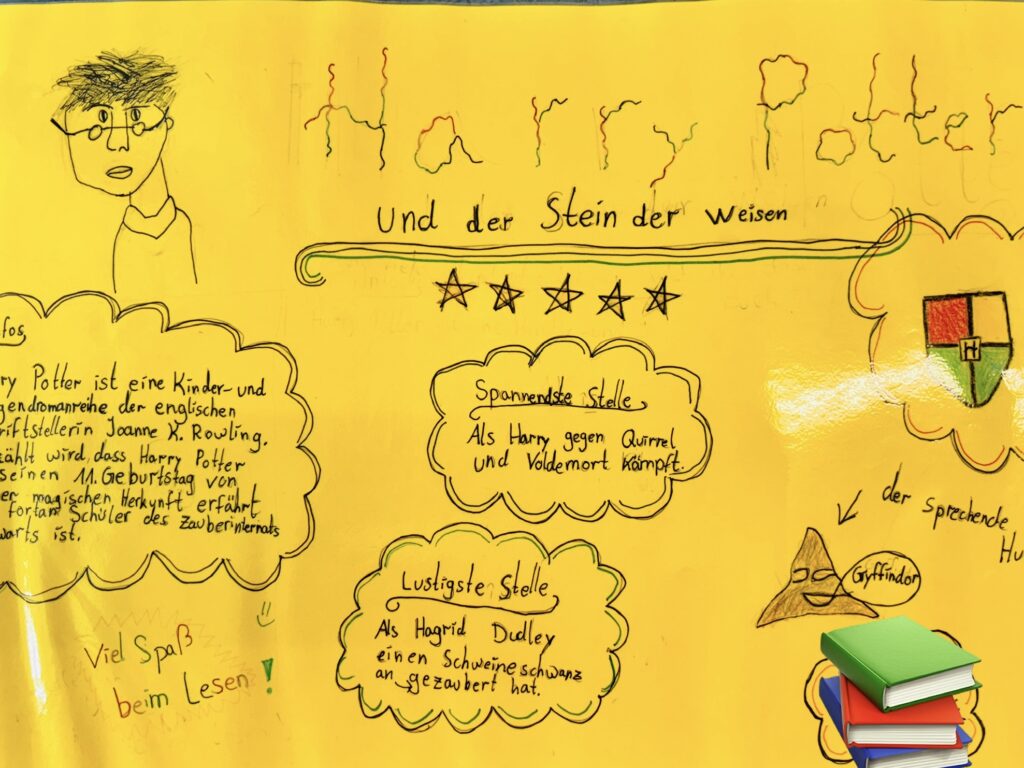 Harry Potter
und der Stein der Weisen
fos
ry Potter ist eine Kinder- und
gendromanreihe der englischen
riftstellerin Joanne K. Rowling.
zählt wird dass Harry Potter
seinen 11. Geburtstag von
er magischen Herkunft erfährt
fortan Schüler des Zauberinternats
warts ist.
Viel Spaß
beim Lesen!
Spannendste Stelle
Als Harry gegen Quirrel
und Voldemort kämpft.
Lustigste Stelle
Als Hagrid Dudley
einen Schweineschwanz
an gezaubert hat.
H
der sprechende
Hu
Gyffindor